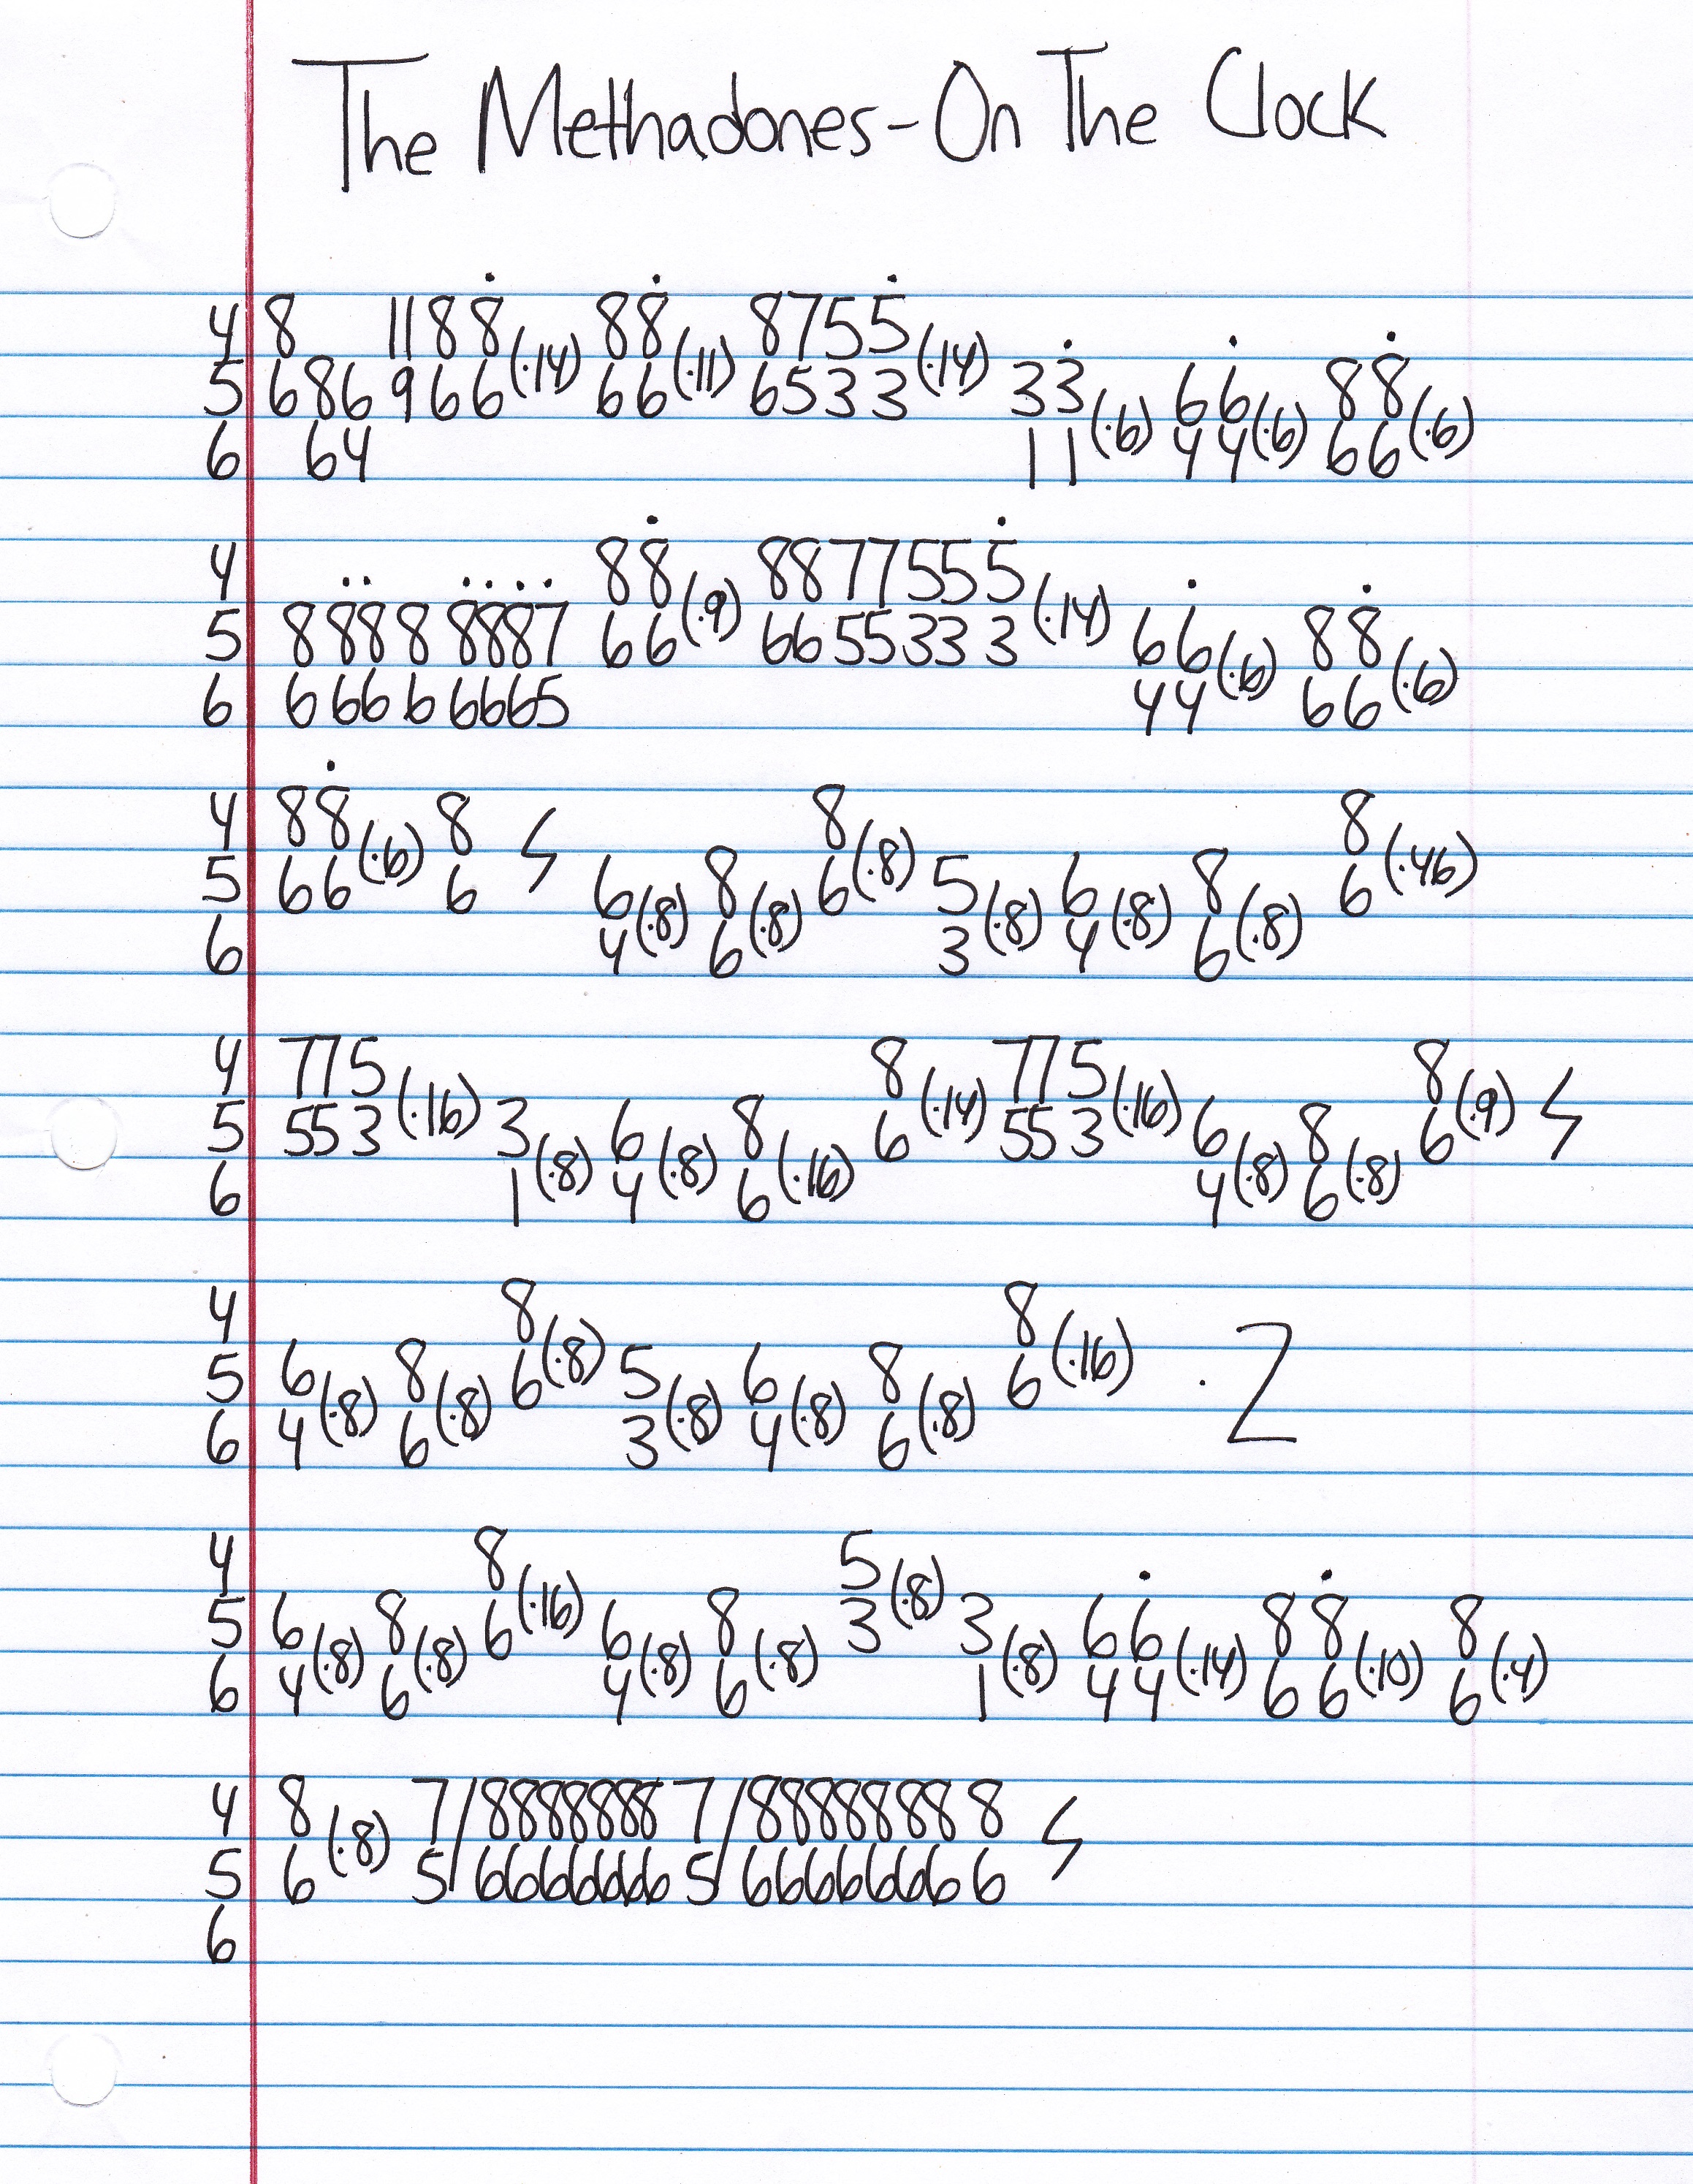 The Methadones - On The Clock
4 8 11 8 8 (·14) 8 8 (·11) 8 7 5 5 (·14)
5 6 8 6 9 6 6 6 6 6 5 3 3 3 3 (·6) 6 6 (·6) 8 8 (·6)
6 6 4 1 1 4 4 6 6
4 8 8 (·9) 8 8 7 7 5 5 5 (·14)
5 8 8 8 8 8 8 8 7 6 6 6 6 5 5 3 3 3 6 6 (·6) 8 8 (·6)
6 6 6 6 6 6 6 6 5 4 4 6 6
4 8 8 (·6) 8 8 (·8) 8 (·46)
5 6 6 6 6 (·8) 8 (·8) 6 5 (·8) 6 (·8) 8 (·8) 6
6 4 6 3 4 6
4 7 7 5 (·16) 8 (·14) 7 7 5 (·16) 8 (·9)
5 5 5 3 3 (·8) 6 (·8) 8 (·16) 6 5 5 3 6 (·8) 8 (·8) 6
6 1 4 6 4 6
4 8 (·8) 8 (·16) · 2
5 6 (·8) 8 (·8) 6 5 (·8) 6 (·8) 8 (·8) 6
6 4 6 3 4 6
4 8 (·16) 5 (·8)
5 6 (·8) 8 (·8) 6 6 (·8) 8 (·8) 3 3 (·8) 6 6 (·14) 8 8 (·10) 8 (·4)
6 4 6 4 6 1 4 4 6 6 6
4 8 (·8) 7 / 8 8 8 8 8 8 8 7 / 8 8 8 8 8 8 8 8
5 6 5 / 6 6 6 6 6 6 6 5 / 6 6 6 6 6 6 6 6
6